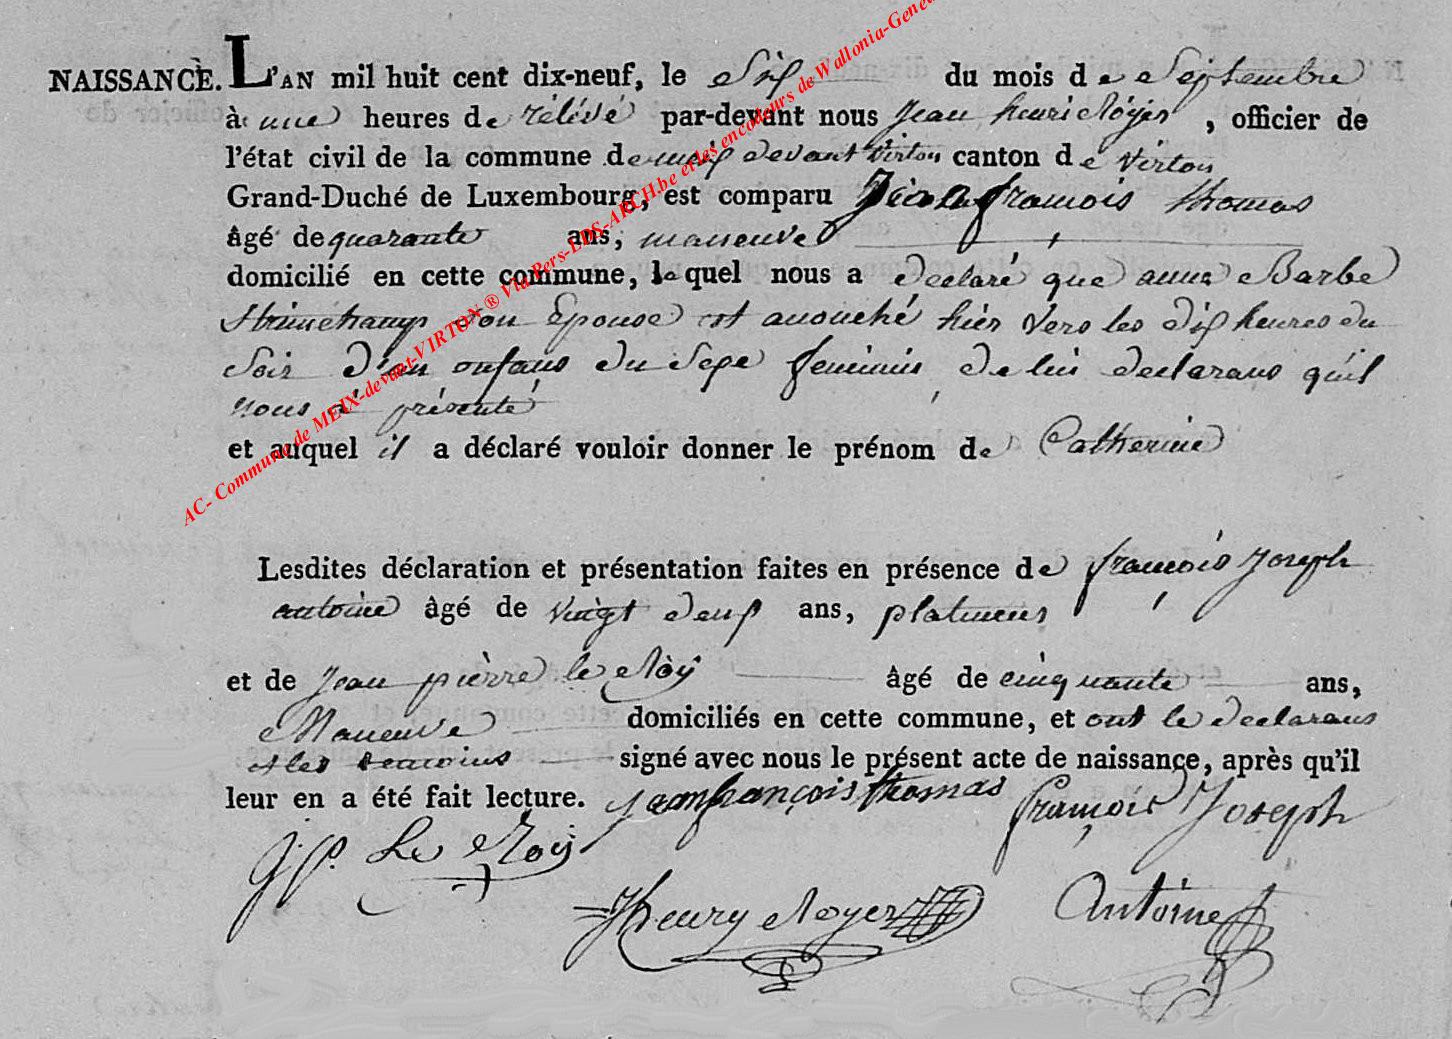 NAISSANCE. L'AN mil huit cent dix-neuf, le Six du mois de Septembre
à une heures de rélévé par-devant nous Jean henri Röyer, officier de
l'état civil de la commune de meix devant Virton canton de Virton
Grand-Duché de Luxembourg, est comparu Jean françois thomas
âgé de quarante ans, maneuvre
domicilié en cette commune, lequel nous a declaré que anne Barbe
son Epouse est accouché hier vers les dix heures du
Soir d'un enfans du Sexe feminin, de lui declarans qu'il
nous a présenté
et auquel il a déclaré vouloir donner le prénom de Catherine
Lesdites déclaration et présentation faites en présence de françois Joseph
antoine âgé de vingt deux ans, platineur
et de Jean pièrre le Röÿ âgé de cinquante ans,
Maneuvre domiciliés en cette commune, et ont le declarans
et les temoins signé avec nous le présent acte de naissance, après qu'il
leur en a été fait lecture. jeanfrançois thomas françois Joseph
J.P. Le Roÿ
JHenry Royer Antoine
AC- Commune de MEIX-devant-VIRTON ® Via Pers-EDS-ARCH.be et les encodeurs de Wallonia-Genea